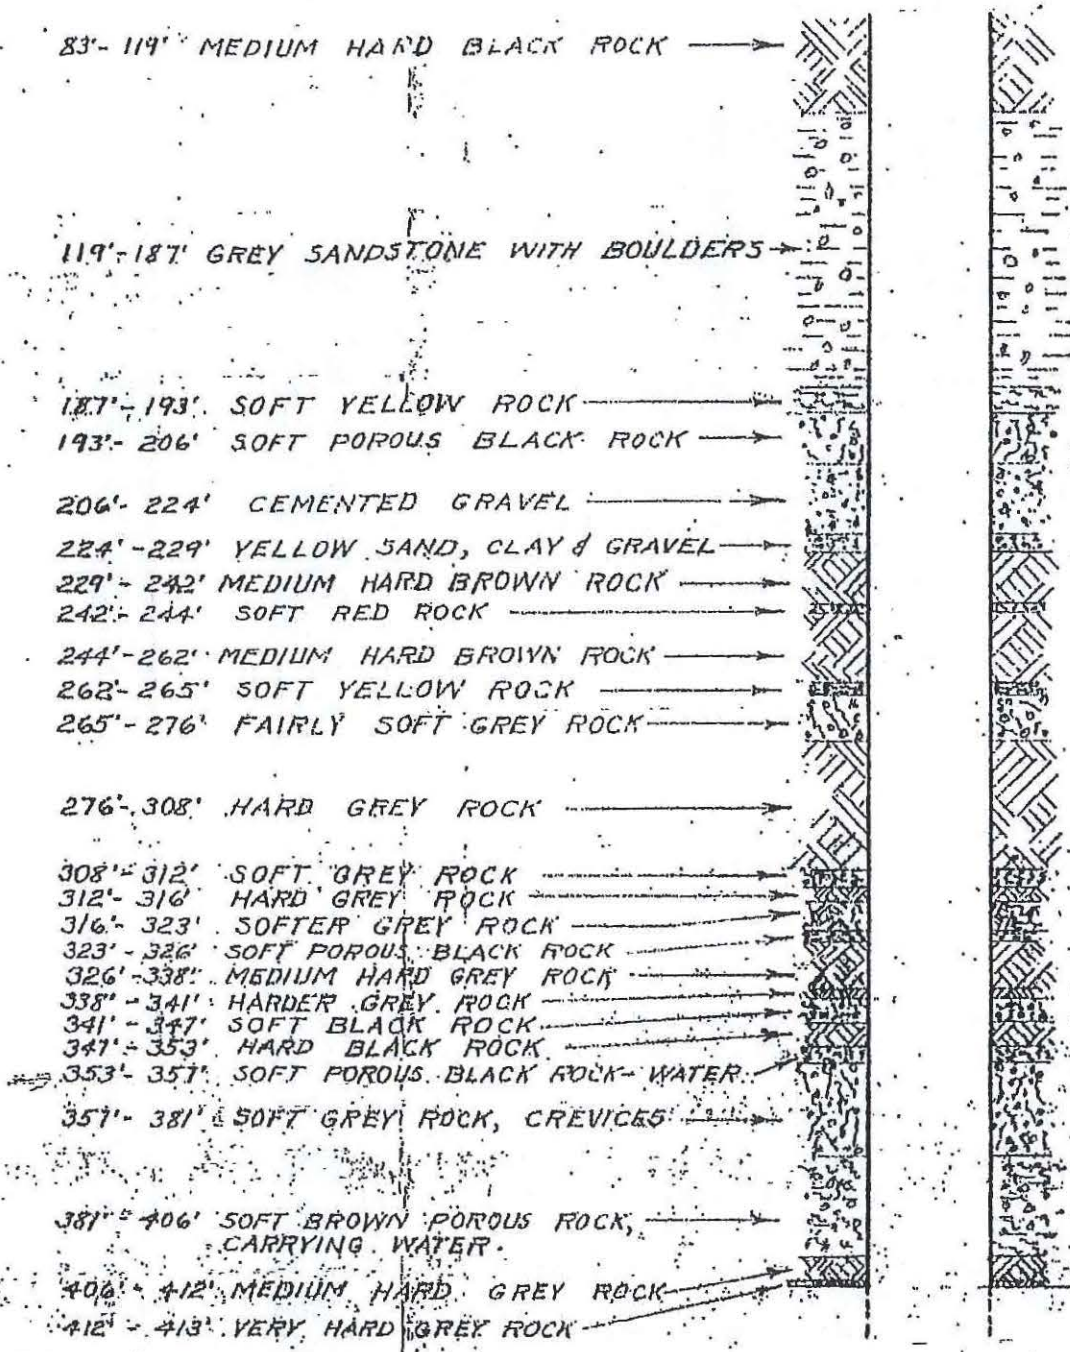 83'- 119' MEDIUM HARD BLACK ROCK
119'-187' GREY SANDSTONE WITH BOULDERS
187'- 193' SOFT YELLOW ROCK
193'- 206' SOFT POROUS BLACK ROCK
206'- 224' CEMENTED GRAVEL
224'-229' YELLOW SAND, CLAY & GRAVEL
229'- 242' MEDIUM HARD BROWN ROCK
242'- 244' SOFT RED ROCK
244'-262' MEDIUM HARD BROWN ROCK
262'- 265' SOFT YELLOW ROCK
265'- 276' FAIRLY SOFT GREY ROCK
276'- 308' HARD GREY ROCK
308'- 312' SOFT GREY ROCK
312'- 316' HARD GREY ROCK
316'- 323' SOFTER GREY ROCK
323'- 326' SOFT POROUS BLACK ROCK
326'-338' MEDIUM HARD GREY ROCK
338'- 341' HARDER GREY ROCK
341'- 347' SOFT BLACK ROCK
347'- 353' HARD BLACK ROCK
353'- 357' SOFT POROUS BLACK ROCK- WATER
357'- 381' SOFT GREY ROCK, CREVICES
381'- 406' SOFT BROWN POROUS ROCK,
CARRYING WATER.
406'- 412' MEDIUM HARD GREY ROCK
412'- 413' VERY HARD GREY ROCK